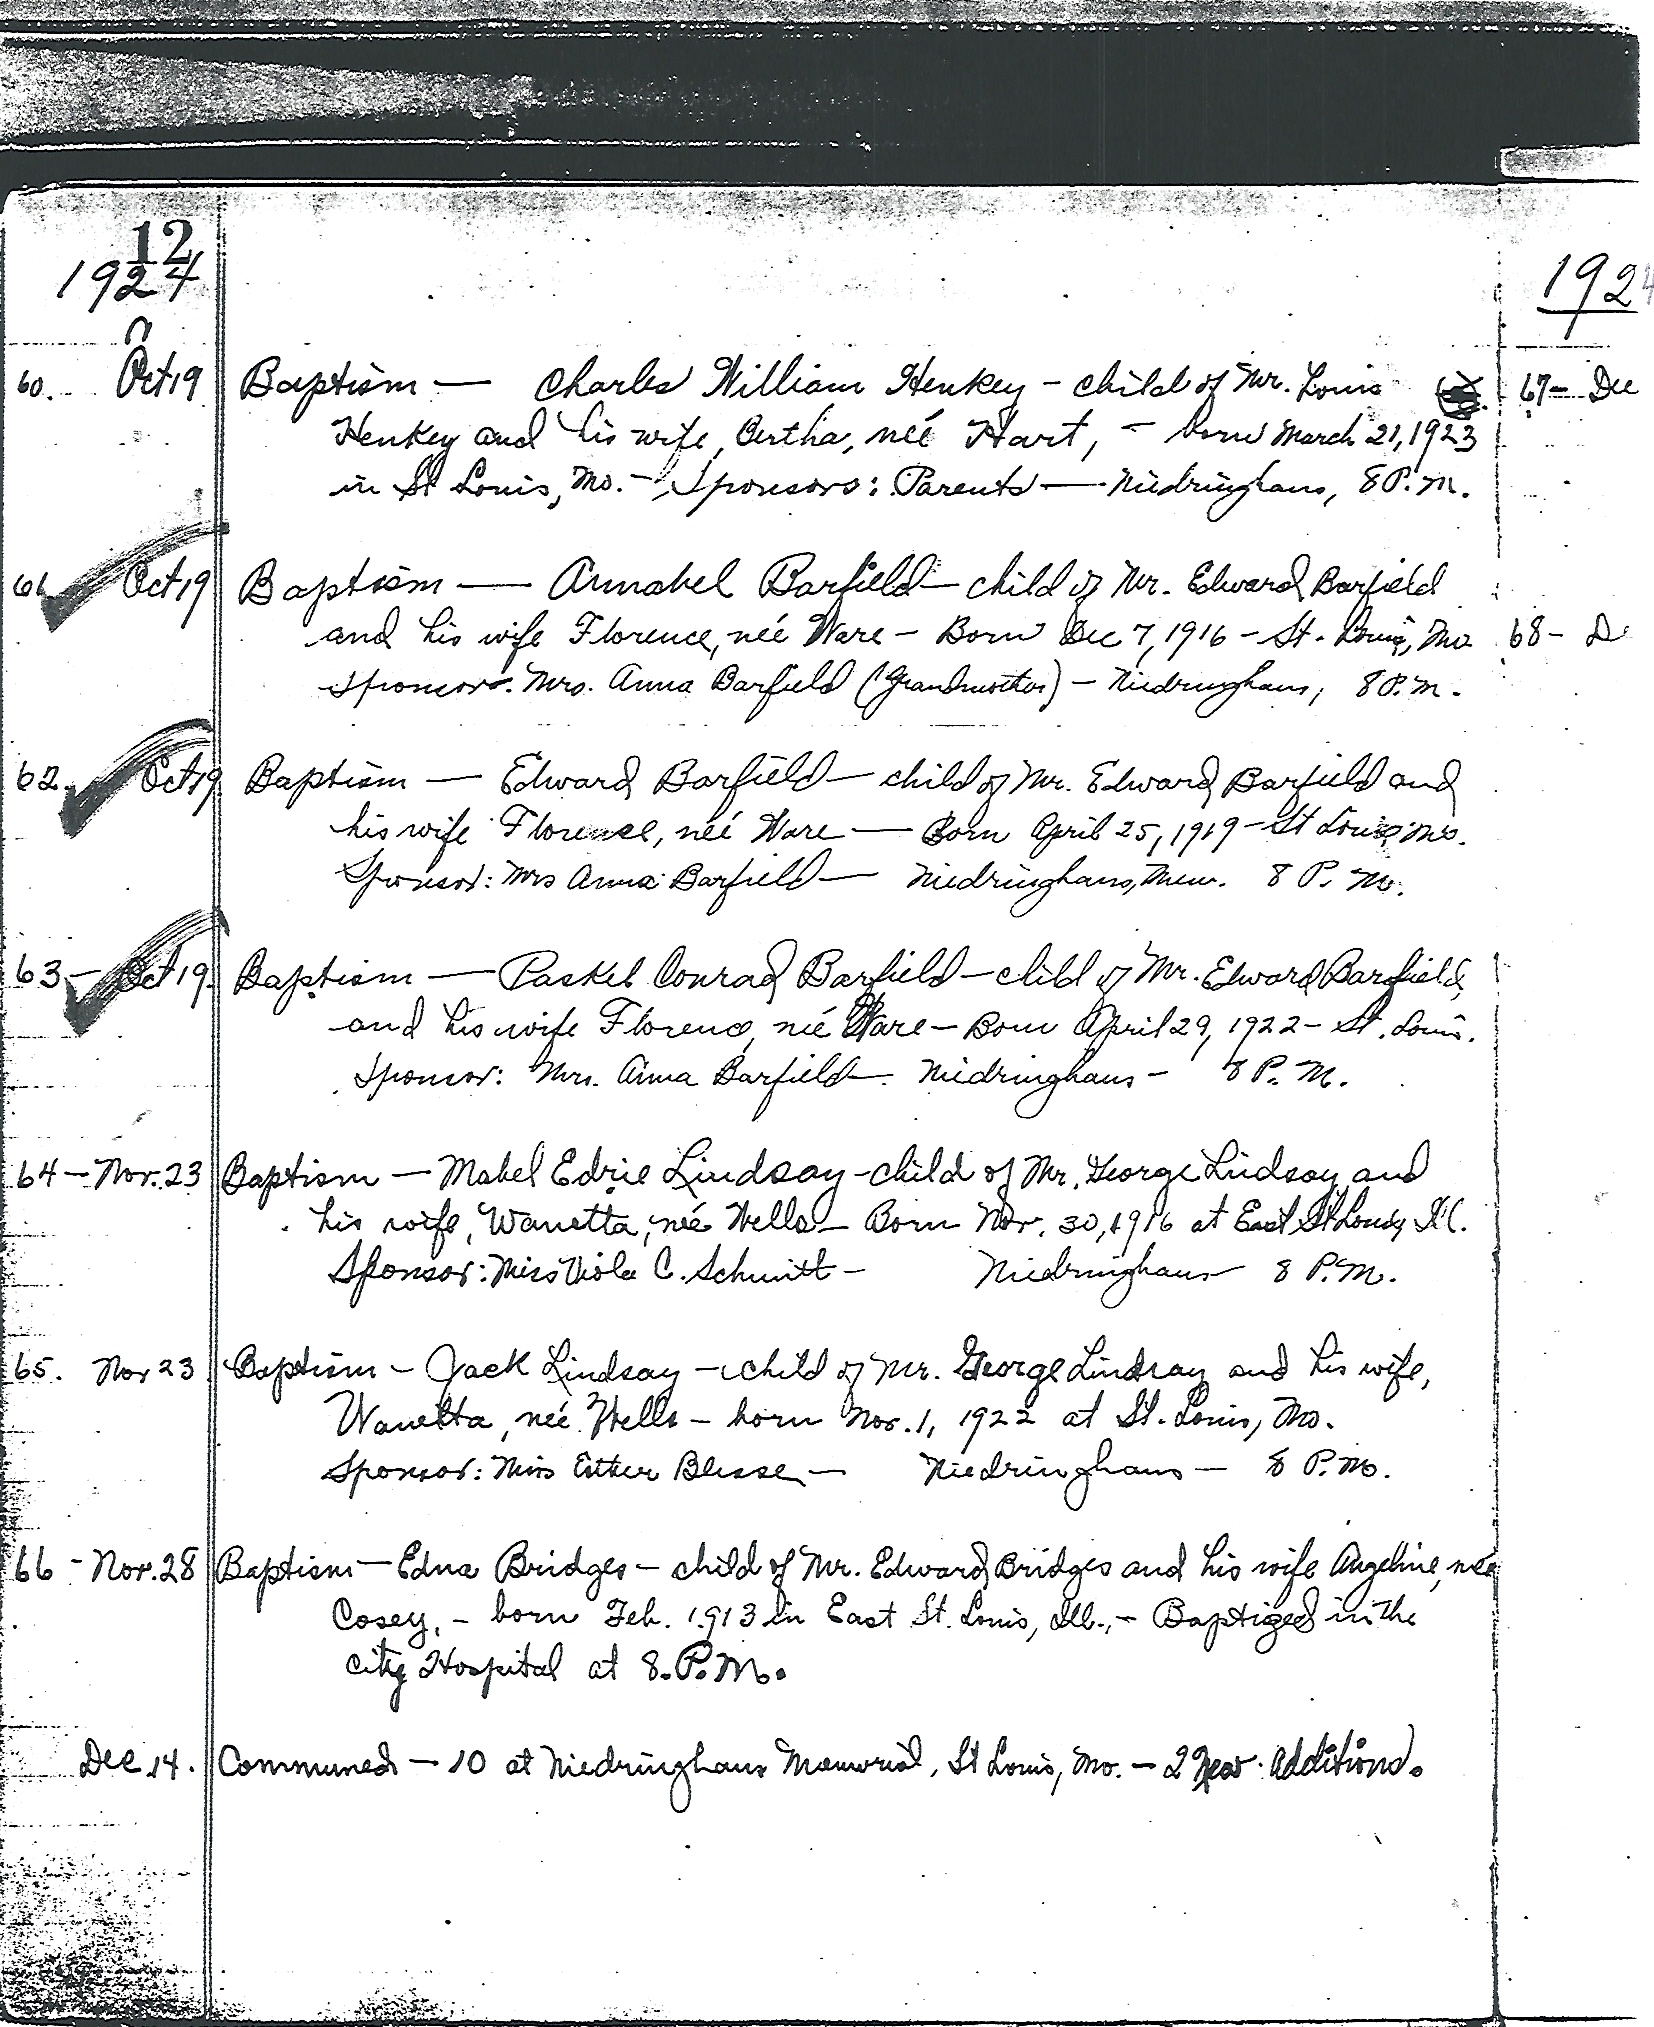 12
1924
60. Oct 19 Baptism — Charles William Henkey - child of Mr. Louis
Henkey and his wife, Bertha, neé Hart, - born March 21, 1923
in St Louis, Mo. - Sponsors: Parents — Niedringhaus, 8 P.M.
61 Oct 19 Baptism — Annabel Barfield - child of Mr. Edward Barfield
and his wife Florence, neé Ware - Born Dec 7, 1916 - St. Louis, Mo
Sponsor. Mrs. Anna Barfield (Grandmother) - Niedringhaus, 8 P.M.
62. Oct 19 Baptism — Edward Barfield - child of Mr. Edward Barfield and
his wife Florence, neé Ware — Born April 25, 1919 - St Louis, Mo.
Sponsor: Mrs Anna Barfield — Niedringhaus, Mem. 8 P. M.
63 - Oct 19. Baptism — Paskel Conrad Barfield - child of Mr. Edward Barfield,
and his wife Florence, neé Ware - Born April 29, 1922 - St. Louis.
Sponsor: Mrs. Anna Barfield. Niedringhaus - 8 P. M.
64 - Nov. 23 Baptism — Mabel Edrie Lindsay - child of Mr. George Lindsay and
his wife, Wanetta, neé Wells - Born Nov. 30, 1916 at East St Louis, Ill.
Sponsor: Miss Viola C. Schmitt - Niedringhaus 8 P.M.
65. Nov 23 Baptism - Jack Lindsay - child of Mr. George Lindsay and his wife,
Wanetta, neé Wells - born Nov. 1, 1922 at St. Louis, Mo.
Sponsor: Miss Esther Blesse - Niedringhaus - 8 P.M.
66 - Nov. 28 Baptism - Edna Bridges - child of Mr. Edward Bridges and his wife Angeline, neé
Cosey, - born Feb. 1913 in East St. Louis, Ill., - Baptized in the
City Hospital at 8. P.M.
Dec. 14. Communed - 10 at Niedringhaus Memorial, St Louis, Mo. - 2 New Additions.
1924
67 - Dec
68 - D